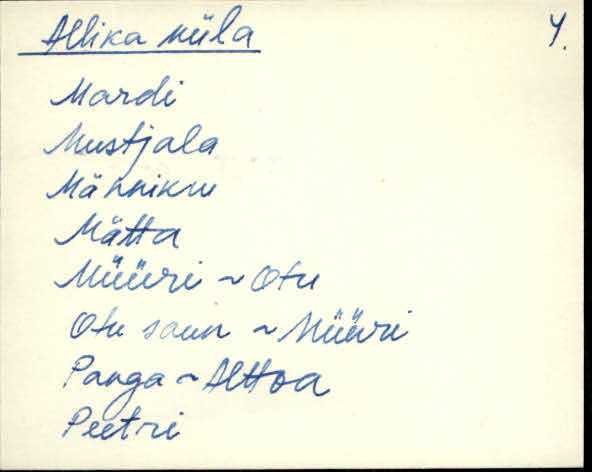 Allika küla 4.
Mardi
Mustjala
Männiku
Mätta
Müüri ~ Otu
Otu saun ~ Müüri
Panga ~ Alttoa
Peetri